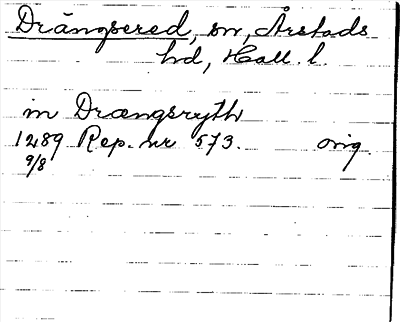 Drängsered, sn, Årstads
hd, Hall. l.
in Drængsryth
1289 Rep. nr 573. orig.
9/8